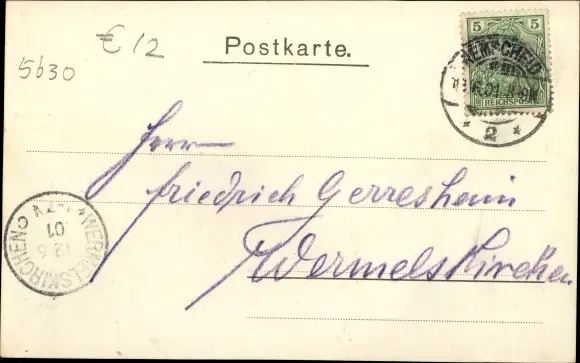 € 12
5630
Postkarte.
5 5
REICHSPOST
REMSCHEID
2
Herrn
Friedrich Gerresheim
Wermelskirchen
WERMELSKIRCHEN
12 6
01